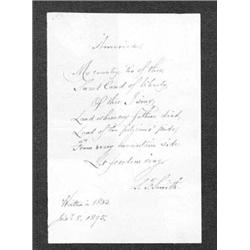 America.
My country tis of thee,
Sweet Land of liberty,
Of thee I sing;
Land where my fathers died,
Land of the pilgrims' pride,
From every mountain side
Let freedom ring.
S. F. Smith.
Written in 1832
5, 1895.